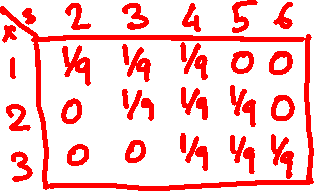 x s 2 3 4 5 6
1 1/9 1/9 1/9 0 0
2 0 1/9 1/9 1/9 0
3 0 0 1/9 1/9 1/9